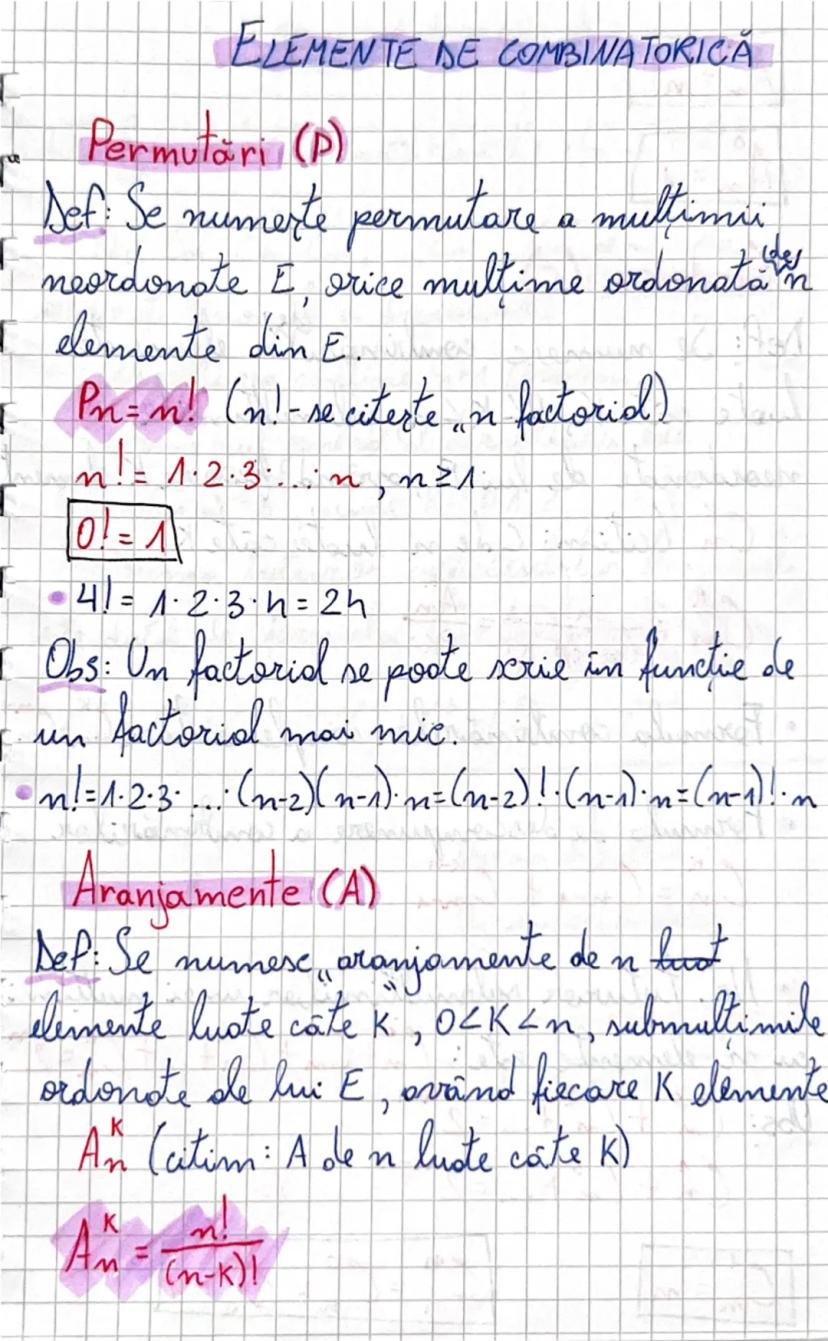 ELEMENTE DE COMBINATORICĂ
Permutări (P)
Def: Se numește permutare a mulțimii
neordonate E, orice mulțime ordonată (de) n
elemente din E.
Pn = n! (n! - se citește „n factorial)
n! = 1·2·3·...·n, n ≥ 1
0! = 1
• 4! = 1·2·3·4 = 24
Obs: Un factorial se poate scrie în funcție de
un factorial mai mic.
• n! = 1·2·3·...·(n-2)(n-1)·n = (n-2)!·(n-1)·n = (n-1)!·n
Aranjamente (A)
Def: Se numesc „aranjamente de n luat
elemente luate câte K”, 0<K<n, submulțimile
ordonate ale lui E, având fiecare K elemente
Aₙᴷ (citim: A de n luate câte K)
Aₙᴷ = n!/(n-K)!